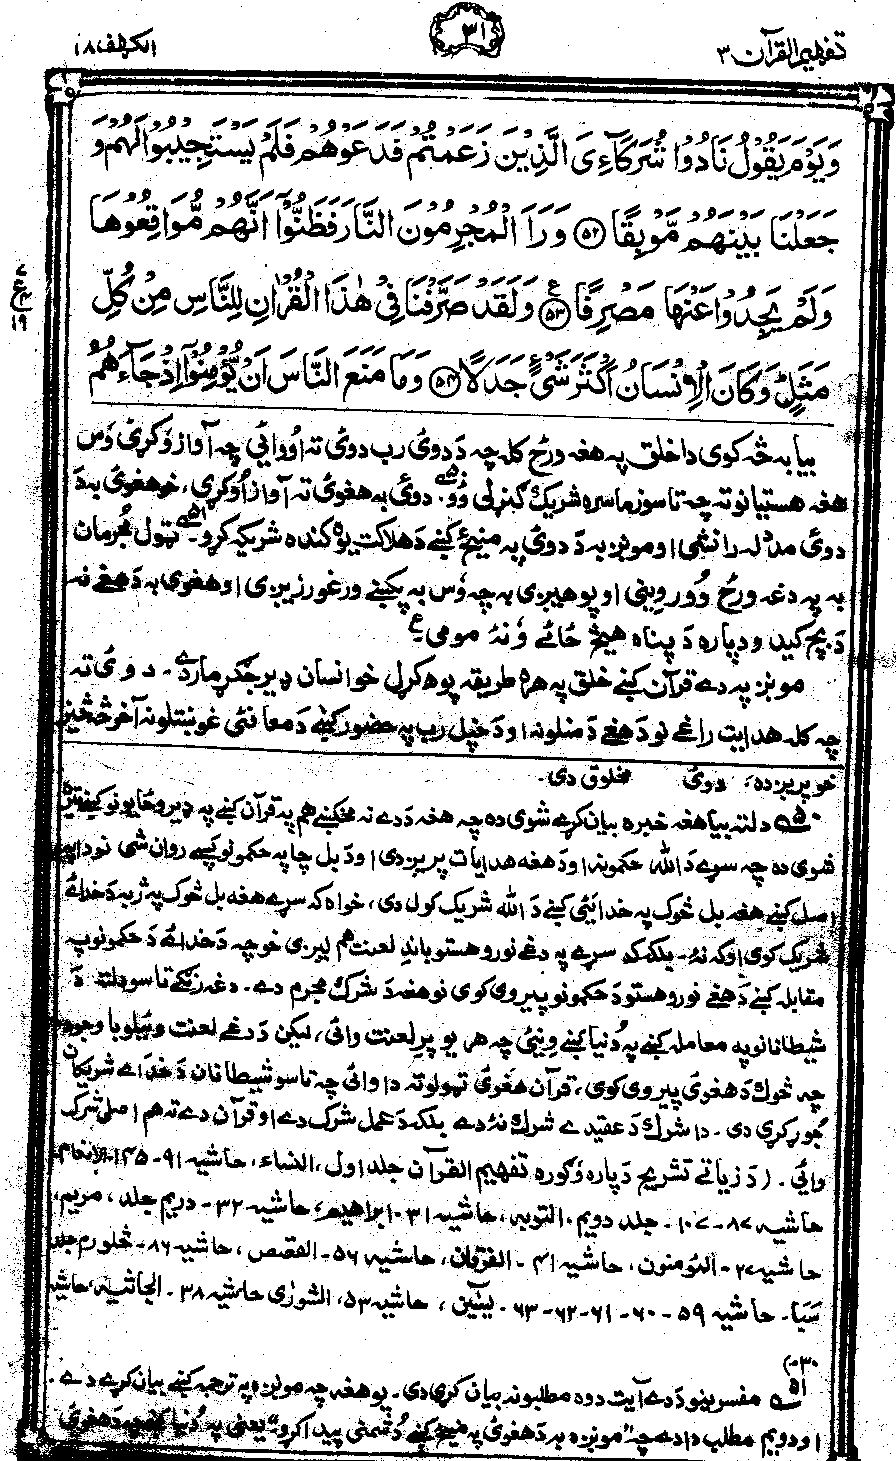 تفهیم القرآن ۳
۳۱
الکهف ۱۸
وَيَوْمَ يَقُوْلُ نَادُوْا شُرَكَآءِیَ الَّذِيْنَ زَعَمْتُمْ فَدَعَوْهُمْ فَلَمْ يَسْتَجِيْبُوْا لَهُمْ وَ
جَعَلْنَا بَيْنَهُمْ مَّوْبِقًا ۵۲ وَرَاَ الْمُجْرِمُوْنَ النَّارَ فَظَنُّوْۤا اَنَّهُمْ مُّوَاقِعُوْهَا
وَلَمْ يَجِدُوْا عَنْهَا مَصْرِفًا ۵۳ ع وَلَقَدْ صَرَّفْنَا فِیْ هٰذَا الْقُرْاٰنِ لِلنَّاسِ مِنْ كُلِّ
مَثَلٍ ؕ وَكَانَ الْاِنْسَانُ اَكْثَرَ شَیْءٍ جَدَلًا ۵۴ وَمَا مَنَعَ النَّاسَ اَنْ يُّؤْمِنُوْۤا اِذْ جَآءَهُمُ
ع
۱۹
بیا به څه کوی دا خلق په هغه ورځ کله چه دَ دویٔ رب دویٔ ته اُووائی چه آواز وَکړیٔ وَس
هغه هستیانو ته چه تاسو زما سره شریک ګنړلی وُو. دویٔ به هغویٔ ته آواز اُوکړی، خو هغویٔ به دَ
دویٔ مدد له رانشی او مونږ به دَ دویٔ په منیځ کښے دَ هلاکت یوه کنده شریکه کړو. ټول مُجرمان
به په دغه ورځ وُور وینی او پوهیږی به چه وُس به پکښے ورغورزیږی او هغوی به دَ هغے نه
دَ بچ کیدو دپاره دَ پناه هیڅ ځائے وَ نهٔ مومی ع
مونږ په دے قرآن کښے خلق په هره طریقه پوهه کړل خو انسان ډیر جګړمار دے. دویٔ ته
چه کله هدایت راغے نو دَ هغے دَ منلو نه او دَ خپل رب په حضور کښے دَ معافئی غوښتلو نه آخر څه څیز
خو پریږده، دویٔ مخلوق دی.
۵۰ دلته بیا هغه خبره بیان کړے شوی ده چه هغه دَ دے نه مخکښے هم په قرآن کښے په ډیرو ځایونو کښے تیره
شوی ده چه سړے دَ الله حکمونه او دَ هغه هدایات پریږدی او دَ بل چا په حکمونو پسے روان شی نو دا په
اصل کښے هغه بل څوک په خدائیٔ کښے دَ الله شریک کول دی، خواه که سړے هغه بل څوک په ژبه دَ خدائے
شریک کوی او که نهٔ. بلکه که سړے په دغے نورو هستو باندِ لعنت هم لیږی خو چه دَ خدائے دَ حکمونو په
مقابله کښے دَ هغے نورو هستو دَ حکمونو پیروی کوی نو هغه دَ شرک مجرم دے. دغه رنګے تاسو دلته دَ
شیطانانو په معامله کښے په دُنیا کښے وینیٔ چه هر یو پرِ لعنت وائی، لیکن دَ دغے لعنت وئیلو با وجود
چه څوک دَ هغویٔ پیروی کوی، قرآن هغویٔ ټولو ته دا وائی چه تاسو شیطانان دَ خدائے شریکان
جوړ کړی دی. دا شرک دَ عقیدے شرک نهٔ دے بلکه دَ عمل شرک دے او قرآن دے ته هم اصلی شرک
وائی. (دَ زیاتے تشریح دَپاره وَګوره تفهیم القرآن جلد اول، النساء، حاشیه ۹۱-۱۴۵، الانعام
حاشیه ۸۷-۱۰۷. جلد دویم، التوبه، حاشیه ۳۱، ابراهیم، حاشیه ۳۲. دریم جلد، مریم،
حاشیه ۲۷. المؤمنون، حاشیه ۴۱. الفرقان، حاشیه ۵۶. القصص، حاشیه ۸۶. څلورم جلد
سَبا. حاشیه ۵۹-۶۰-۶۱-۶۲-۶۳. یٰسٓین، حاشیه ۵۳، الشورٰی حاشیه ۳۸. الجاثیه، حاشیه
۳۰)
۵۱ مفسرینو دَ دے آیت دوه مطلبونه بیان کړی دی. یو هغه چه مونږه په ترجمه کښے بیان کړے دے.
او دویم مطلب دا دے چه "مونږه به دَ هغویٔ په منیځ کښے دُشمنی پیدا کړو" یعنی په دُنیا کښے چه دَ هغویٔ